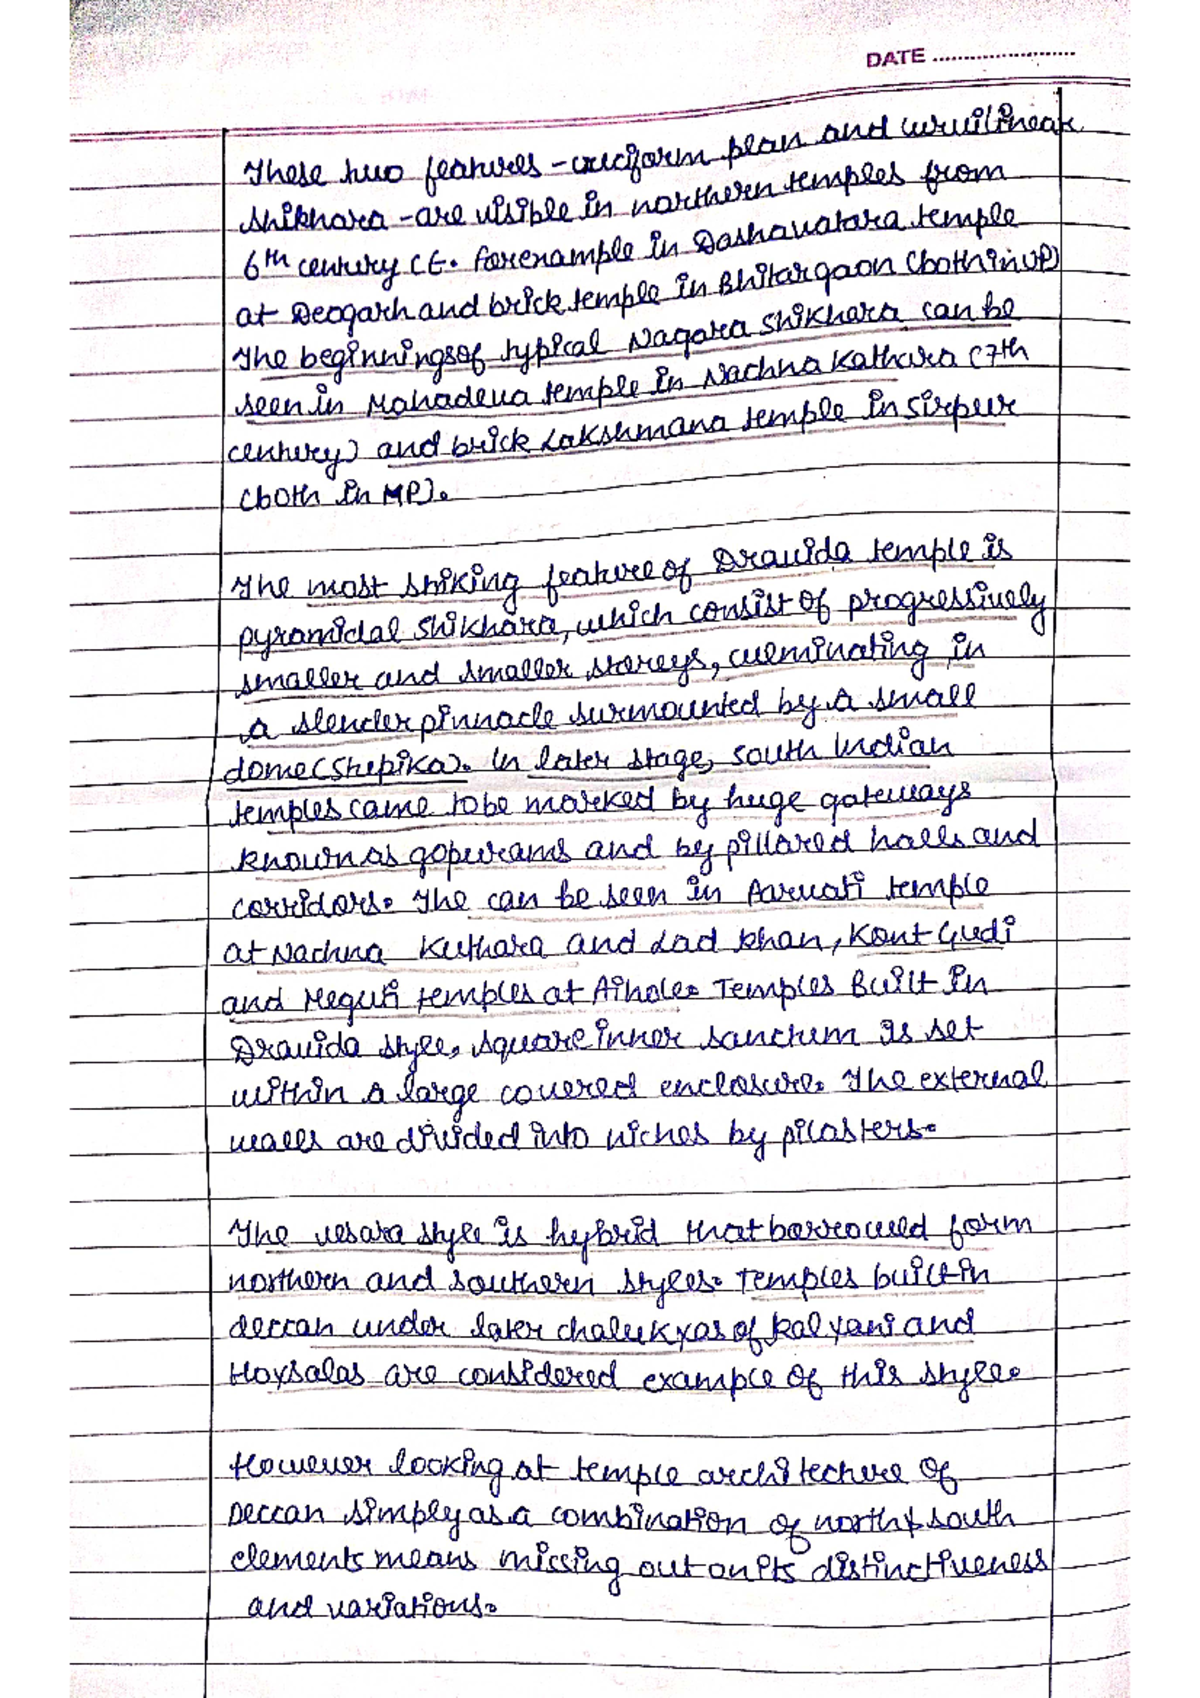 DATE ........................
These two features - cruciform plan and curvilinear
shikhara - are visible in northern temples from
6th century CE. For example in Dashavatara temple
at Deogarh and brick temple in Bhitargaon (both in UP)
The beginnings of typical Nagara shikhara can be
seen in Mahadeva temple in Nachna Kathara (7th
century) and brick Lakshmana temple in Sirpur
(both in MP).
The most striking feature of Dravida temple is
pyramidal shikhara, which consist of progressively
smaller and smaller storeys, culminating in
a slender pinnacle surmounted by a small
dome (Stupika). In later stage, south Indian
temples came to be marked by huge gateways
known as gopurams and by pillared halls and
corridors. The can be seen in Parvati temple
at Nachna Kuthara and Lad khan, Kont Gudi
and Meguti temples at Aihole. Temples Built in
Dravida style, square inner sanctum is set
within a large covered enclosure. The external
walls are divided into niches by pilasters.
The vesara style is hybrid that borrowed form
northern and southern styles. Temples built in
deccan under later chalukyas of Kalyani and
Hoysalas are considered example of this style.
However looking at temple architecture of
Deccan simply as a combination of north & south
elements means missing out on its distinctiveness
and variations.